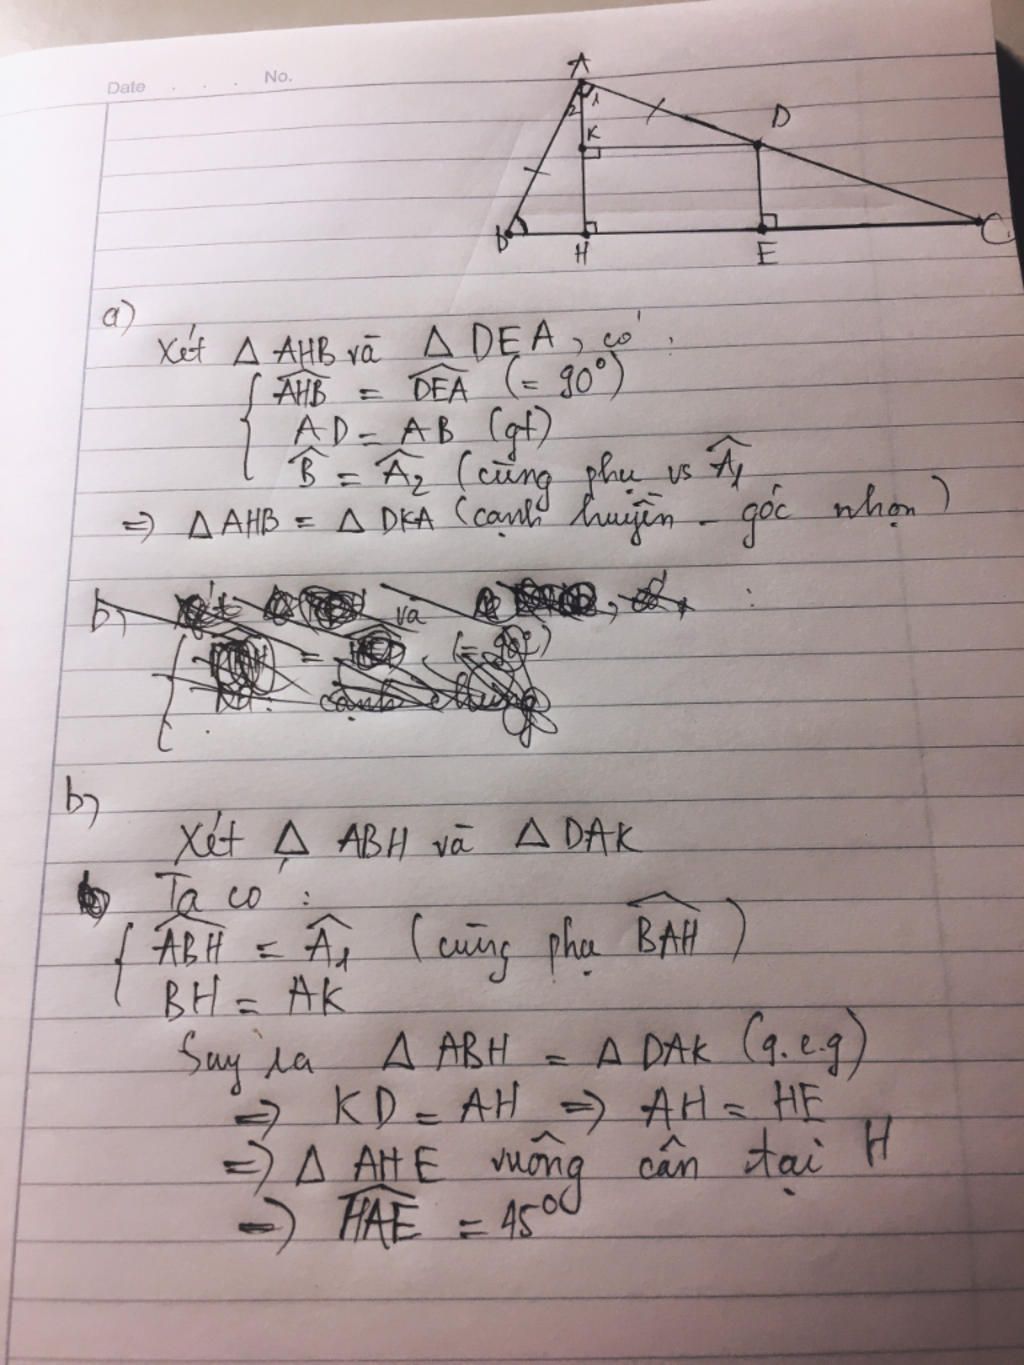 Date . . . No.
A
2 1
K
D
B
H
E
C
a)
Xét Δ AHB và Δ DEA, có :
$\widehat{AHB}$ = $\widehat{DEA}$ (= 90°)
AD = AB (gt)
$\widehat{B}$ = $\widehat{A}_2$ (cùng phụ vs $\widehat{A}_1$
=> Δ AHB = Δ DKA (cạnh huyền - góc nhọn)
b,
và
:
= (= 90°)
cạnh chung
b,
Xét Δ ABH và Δ DAK
Ta co :
$\widehat{ABH}$ = $\widehat{A}_1$ (cùng phụ $\widehat{BAH}$)
BH = AK
Suy ra Δ ABH = Δ DAK (g.c.g)
=> KD = AH => AH = HE
=> Δ AHE vuông cân tại H
=> $\widehat{HAE}$ = 45°